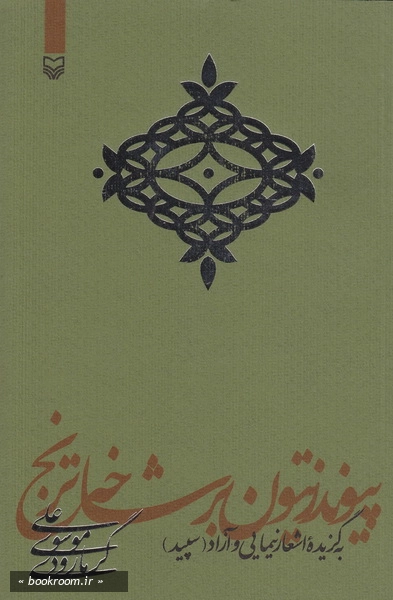 پیوند زیتون بر شاخهٔ ترنج
به گزیدهٔ اشعار نیمایی و آزاد (سپید)
علی
موسوی
گرمارودی
« bookroom.ir »